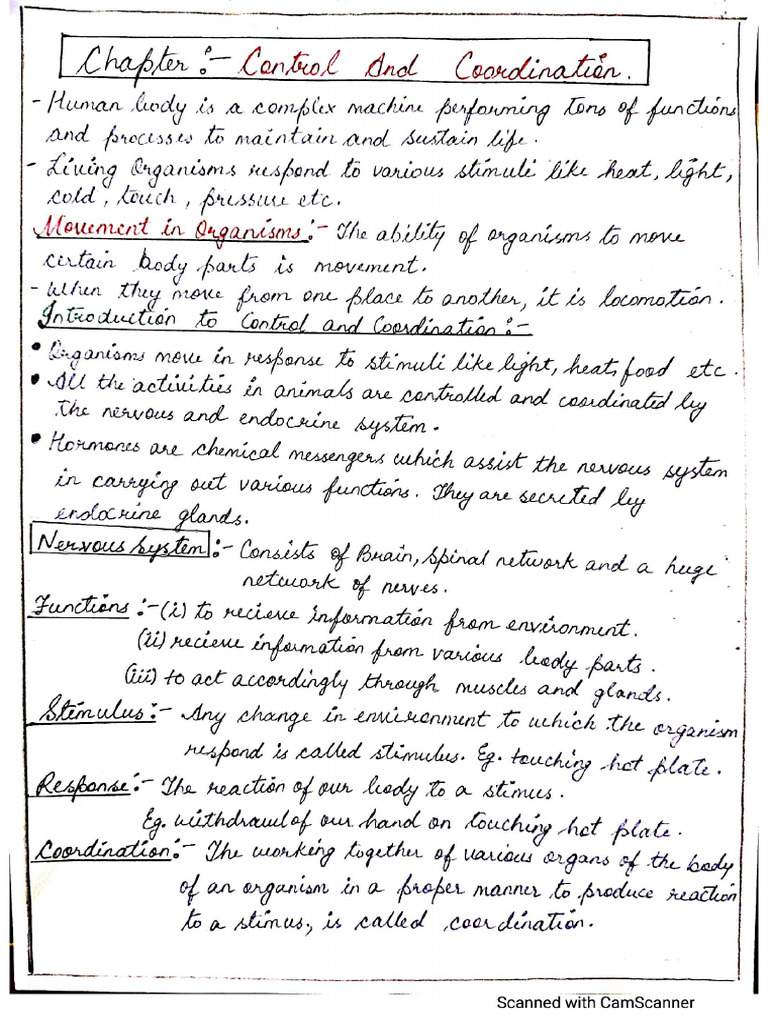 Chapter :- Control And Coordination.
- Human body is a complex machine performing tons of functions
and processes to maintain and sustain life.
- Living Organisms respond to various stimuli like heat, light,
cold, touch, pressure etc.
Movement in Organisms :- The ability of organisms to move
certain body parts is movement.
- When they move from one place to another, it is locomotion.
Introduction to Control and Coordination :-
• Organisms move in response to stimuli like light, heat, food etc.
• All the activities in animals are controlled and coordinated by
the nervous and endocrine system.
• Hormones are chemical messengers which assist the nervous system
in carrying out various functions. They are secreted by
endocrine glands.
Nervous System :- Consists of Brain, spinal network and a huge
network of nerves.
Functions :- (i) to recieve information from environment.
(ii) recieve information from various body parts.
(iii) to act accordingly through muscles and glands.
Stimulus :- Any change in environment to which the organism
respond is called stimulus. Eg. touching hot plate.
Response :- The reaction of our body to a stimus.
Eg. withdrawl of our hand on touching hot plate.
Coordination :- The working together of various organs of the body
of an organism in a proper manner to produce reaction
to a stimus, is called coordination.
Scanned with CamScanner